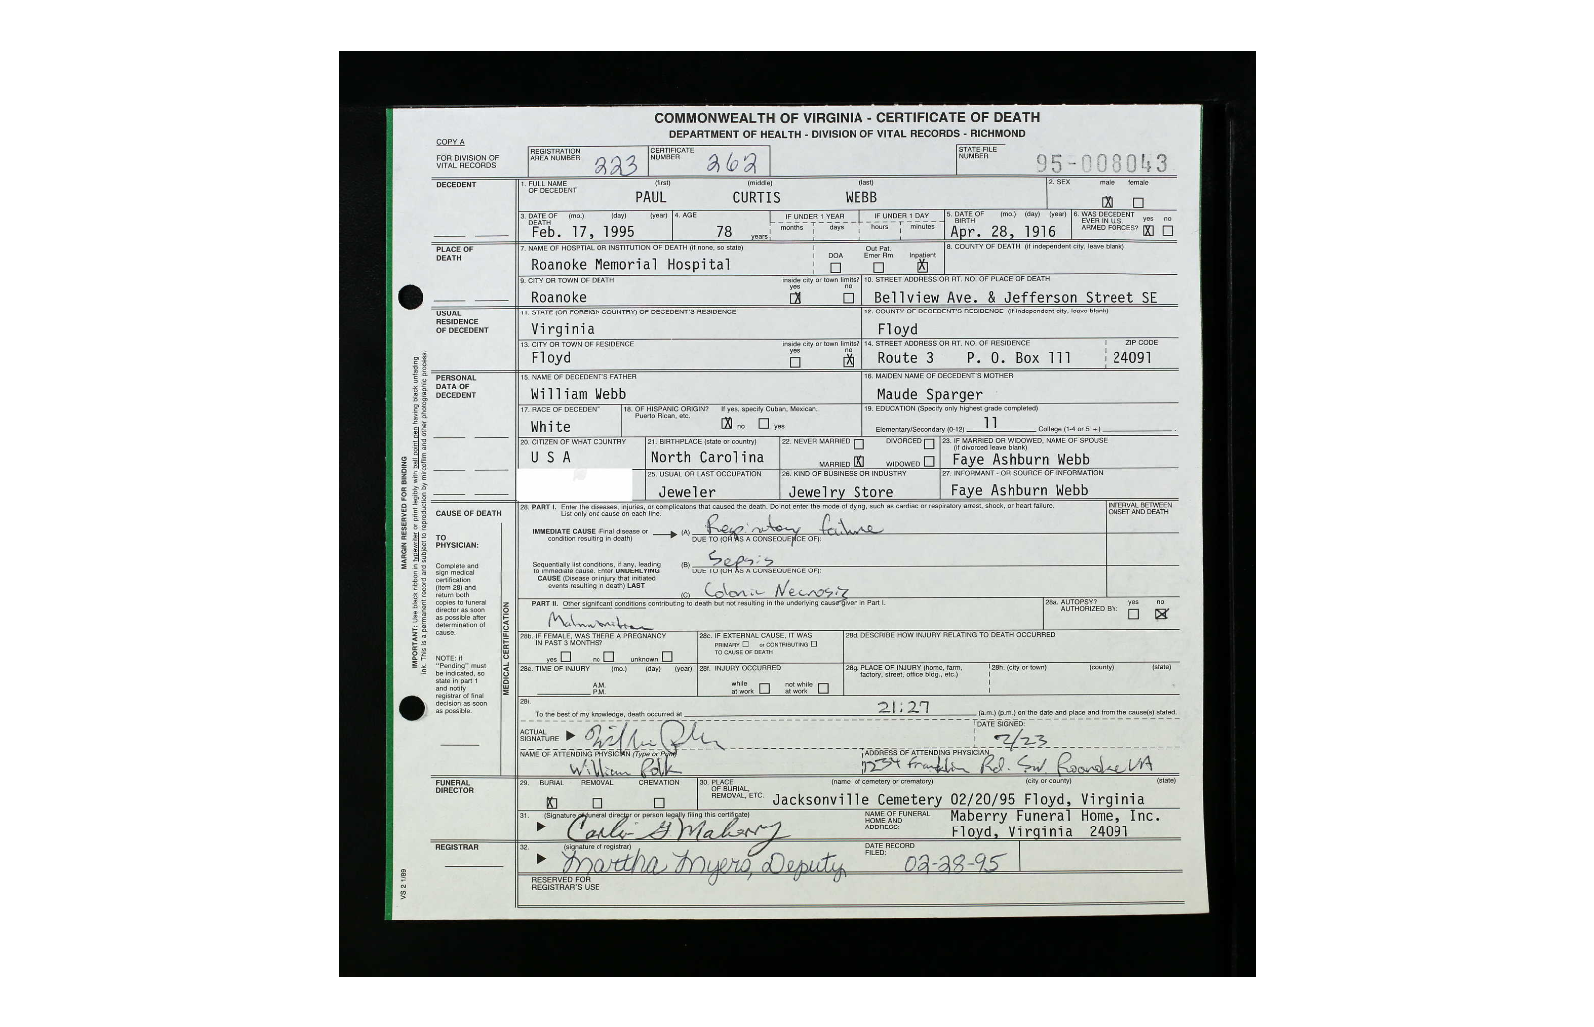 COMMONWEALTH OF VIRGINIA - CERTIFICATE OF DEATH
DEPARTMENT OF HEALTH - DIVISION OF VITAL RECORDS - RICHMOND
COPY A
FOR DIVISION OF VITAL RECORDS
REGISTRATION AREA NUMBER 223 CERTIFICATE NUMBER 262 STATE FILE NUMBER 95-008043
DECEDENT
1. FULL NAME OF DECEDENT (first) (middle) (last) 2. SEX male female
PAUL CURTIS WEBB X
3. DATE OF DEATH (mo.) (day) (year) 4. AGE IF UNDER 1 YEAR IF UNDER 1 DAY 5. DATE OF BIRTH (mo.) (day) (year) 6. WAS DECEDENT EVER IN U.S. ARMED FORCES? yes no
months days hours minutes
Feb. 17, 1995 78 years Apr. 28, 1916 X
PLACE OF DEATH
7. NAME OF HOSPTIAL OR INSTITUTION OF DEATH (if none, so state) DOA Out Pat. Emer Rm Inpatient 8. COUNTY OF DEATH (if independent city, leave blank)
Roanoke Memorial Hospital X
9. CITY OR TOWN OF DEATH inside city or town limits? yes no 10. STREET ADDRESS OR RT. NO. OF PLACE OF DEATH
Roanoke X Bellview Ave. & Jefferson Street SE
USUAL RESIDENCE OF DECEDENT
11. STATE (OR FOREIGN COUNTRY) OF DECEDENT'S RESIDENCE 12. COUNTY OF DECEDENT'S RESIDENCE (if independent city, leave blank)
Virginia Floyd
13. CITY OR TOWN OF RESIDENCE inside city or town limits? yes no 14. STREET ADDRESS OR RT. NO. OF RESIDENCE ZIP CODE
Floyd X Route 3 P. O. Box 111 24091
PERSONAL DATA OF DECEDENT
15. NAME OF DECEDENT'S FATHER 16. MAIDEN NAME OF DECEDENT'S MOTHER
William Webb Maude Sparger
17. RACE OF DECEDEN" 18. OF HISPANIC ORIGIN? If yes, specify Cuban, Mexican, Puerto Rican, etc. 19. EDUCATION (Specify only highest grade completed)
White X no yes Elementary/Secondary (0-12) 11 College (1-4 or 5 +)
20. CITIZEN OF WHAT COUNTRY 21. BIRTHPLACE (state or country) 22. NEVER MARRIED DIVORCED 23. IF MARRIED OR WIDOWED, NAME OF SPOUSE (if divorced leave blank)
U S A North Carolina MARRIED X WIDOWED Faye Ashburn Webb
25. USUAL OR LAST OCCUPATION 26. KIND OF BUSINESS OR INDUSTRY 27. INFORMANT - OR SOURCE OF INFORMATION
Jeweler Jewelry Store Faye Ashburn Webb
CAUSE OF DEATH
28. PART I. Enter the diseases, injuries, or complicatons that caused the death. Do not enter the mode of dyng, such as cardiac or respiratory arrest, shock, or heart failure. List only one cause on each line. INTERVAL BETWEEN ONSET AND DEATH
TO PHYSICIAN:
IMMEDIATE CAUSE Final disease or condition resulting in death) (A) Respiratory failure
DUE TO (OR AS A CONSEQUENCE OF):
Complete and sign medical certification (item 28) and return both copies to funeral director as soon as possible after determination of cause.
Sequentially list conditions, if any, leading to immediate cause. Enter UNDERLYING CAUSE (Disease or injury that initiated events resulting in death) LAST
(B) Sepsis
DUE TO (OR AS A CONSEQUENCE OF):
(C) Colonic Necrosis
PART II. Other signifcant conditions contributing to death but not resulting in the underlying cause giver in Part I. 28a. AUTOPSY? AUTHORIZED BY: yes no
Malnutrition X
28b. IF FEMALE, WAS THERE A PREGNANCY IN PAST 3 MONTHS? yes no unknown 28c. IF EXTERNAL CAUSE, IT WAS PRIMARY or CONTRIBUTING TO CAUSE OF DEATH 28d. DESCRIBE HOW INJURY RELATING TO DEATH OCCURRED
NOTE: If "Pending" must be indicated, so state in part 1 and notify registrar of final decision as soon as possible.
28e. TIME OF INJURY (mo.) (day) (year) A.M. P.M. 28f. INJURY OCCURRED while at work not while at work 28g. PLACE OF INJURY (home, farm, factory, street, office bldg., etc.) 28h. (city or town) (county) (state)
28i. To the best of my knowledge, death occurred at 21:27 (a.m.) (p.m.) on the date and place and from the cause(s) stated.
ACTUAL SIGNATURE DATE SIGNED: 2/23
NAME OF ATTENDING PHYSICIAN (Type or Print) ADDRESS OF ATTENDING PHYSICIAN
William Polk Franklin Rd. SW. Roanoke VA
MEDICAL CERTIFICATION
FUNERAL DIRECTOR
29. BURIAL REMOVAL CREMATION 30. PLACE OF BURIAL, REMOVAL, ETC. (name of cemetery or crematory) (city or county) (state)
X Jacksonville Cemetery 02/20/95 Floyd, Virginia
31. (Signature of funeral director or person legally filing this certificate) NAME OF FUNERAL HOME AND ADDRESS: Maberry Funeral Home, Inc.
Maberry Floyd, Virginia 24091
REGISTRAR
32. (signature of registrar) DATE RECORD FILED:
Martha Myers, Deputy 02-28-95
RESERVED FOR REGISTRAR'S USE
MARGIN RESERVED FOR BINDING
IMPORTANT: Use black ribbon in typewriter or print legibly with ball point pen having black unfading ink. This is a permanent record and subject to reproduction by mircofilm and other photographic process.
VS 2 1/89